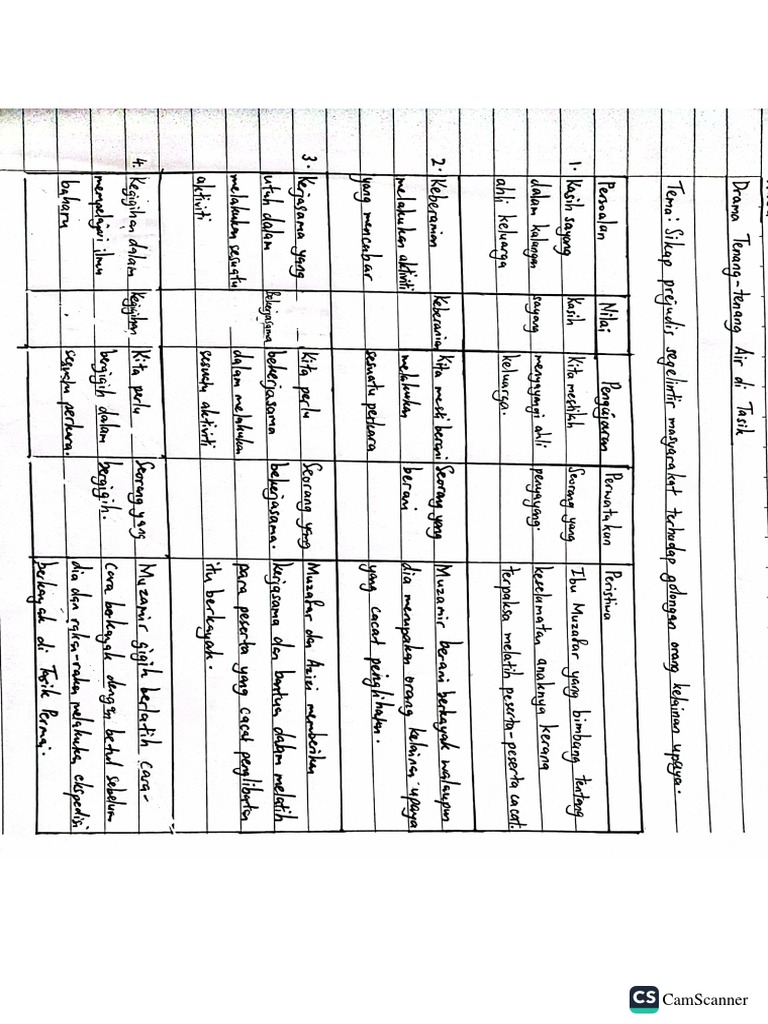 Drama Tenang-tenang Air di Tasik
Tema: Sikap prejudis segelintir masyarakat terhadap golongan orang kelainan upaya.
Persoalan Nilai Pengajaran Perwatakan Peristiwa
1. Kasih sayang Kasih Kita mestilah Seorang yang Ibu Muzafar yang bimbang tentang
dalam kalangan sayang menyayangi ahli penyayang. keselamatan anaknya kerana
ahli keluarga keluarga. terpaksa melatih peserta-peserta cacat.
2. Keberanian Keberanian Kita mesti berani Seorang yang Muzamir berani berkayak walaupun
melakukan aktiviti melakukan berani dia merupakan orang kelainan upaya
yang mencabar sesuatu perkara yang cacat penglihatan.
3. Kerjasama yang Kita perlu Seorang yang Muzafar dan Azizi memberikan
utuh dalam Bekerjasama bekerjasama bekerjasama. kerjasama dan bantua dalam melatih
melakukan sesuatu dalam melakukan para peserta yang cacat penglihatan
aktiviti sesuatu aktiviti itu berkayak.
4. Kegigihan dalam Kegigihan Kita perlu Seorang yang Muzamir gigih berlatih cara-
mempelajari ilmu bergigih dalam bergigih. cara berkayak dengan betul sebelum
baharu sesuatu perkara. dia dan rakan-rakan melakukan ekspedisi
berkayak di Tasik Permai.
CS CamScanner